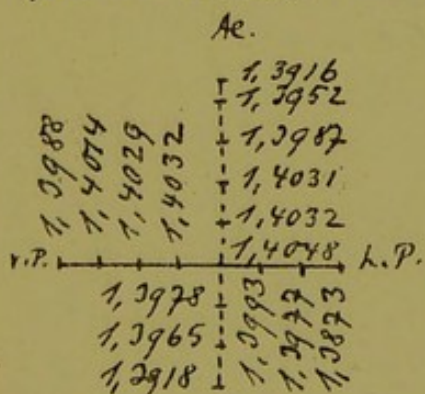 Ae.
1,3916
1,3952
1,3987
1,4031
1,4032
1,4048
1,3988
1,4014
1,4029
1,4032
v.P.
h.P.
1,3978
1,3965
1,3918
1,3993
1,3977
1,3873